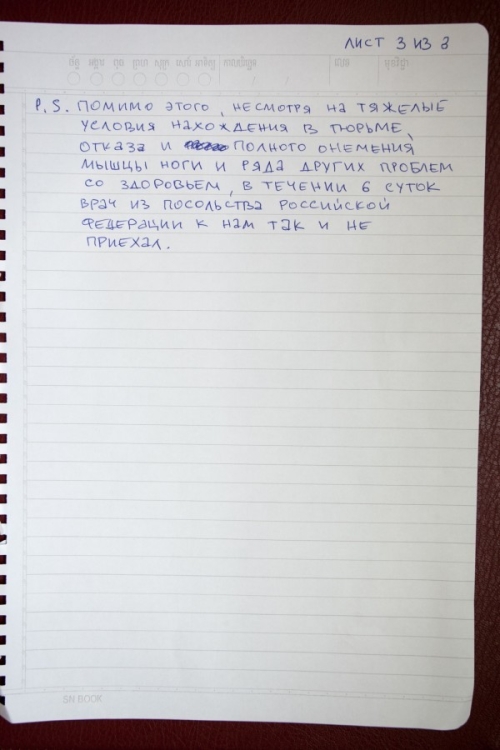 ЛИСТ 3 ИЗ 3
P.S. ПОМИМО ЭТОГО, НЕСМОТРЯ НА ТЯЖЕЛЫЕ
УСЛОВИЯ НАХОЖДЕНИЯ В ТЮРЬМЕ,
ОТКАЗА И ПОЛНОГО ОНЕМЕНИЯ
МЫШЦЫ НОГИ И РЯДА ДРУГИХ ПРОБЛЕМ
СО ЗДОРОВЬЕМ, В ТЕЧЕНИИ 6 СУТОК
ВРАЧ ИЗ ПОСОЛЬСТВА РОССИЙСКОЙ
ФЕДЕРАЦИИ К НАМ ТАК И НЕ
ПРИЕХАЛ.
SN BOOK